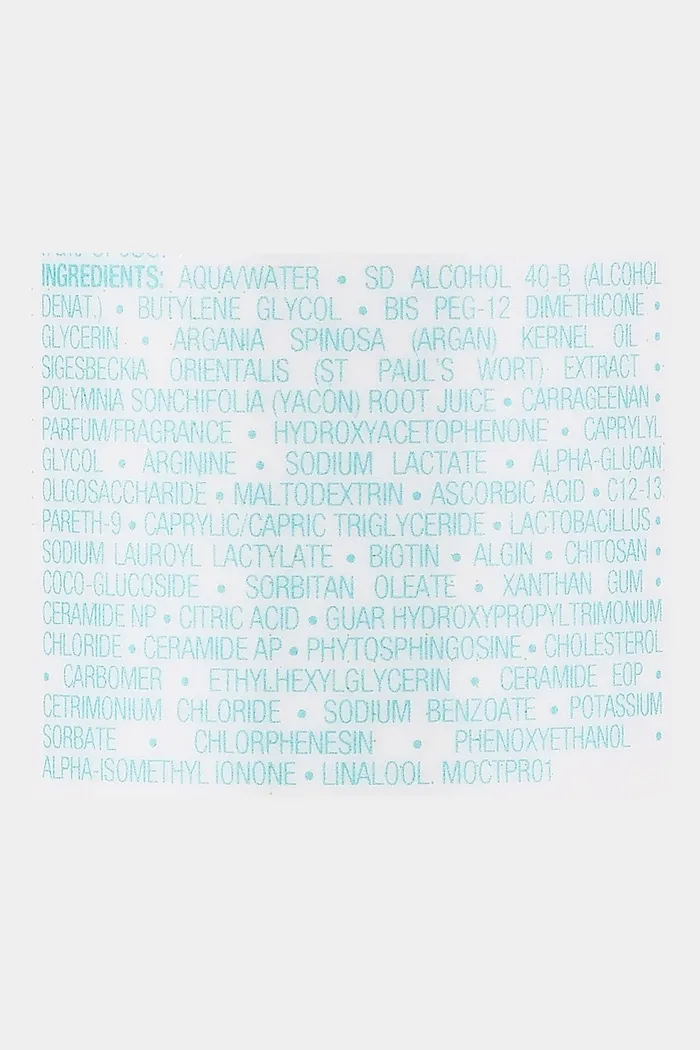 INGREDIENTS: AQUA/WATER • SD ALCOHOL 40-B (ALCOHOL
DENAT.) • BUTYLENE GLYCOL • BIS PEG-12 DIMETHICONE •
GLYCERIN • ARGANIA SPINOSA (ARGAN) KERNEL OIL •
SIGESBECKIA ORIENTALIS (ST PAUL'S WORT) EXTRACT •
POLYMNIA SONCHIFOLIA (YACON) ROOT JUICE • CARRAGEENAN •
PARFUM/FRAGRANCE • HYDROXYACETOPHENONE • CAPRYLYL
GLYCOL • ARGININE • SODIUM LACTATE • ALPHA-GLUCAN
OLIGOSACCHARIDE • MALTODEXTRIN • ASCORBIC ACID • C12-13
PARETH-9 • CAPRYLIC/CAPRIC TRIGLYCERIDE • LACTOBACILLUS •
SODIUM LAUROYL LACTYLATE • BIOTIN • ALGIN • CHITOSAN •
COCO-GLUCOSIDE • SORBITAN OLEATE • XANTHAN GUM •
CERAMIDE NP • CITRIC ACID • GUAR HYDROXYPROPYLTRIMONIUM
CHLORIDE • CERAMIDE AP • PHYTOSPHINGOSINE • CHOLESTEROL
• CARBOMER • ETHYLHEXYLGLYCERIN • CERAMIDE EOP •
CETRIMONIUM CHLORIDE • SODIUM BENZOATE • POTASSIUM
SORBATE • CHLORPHENESIN • PHENOXYETHANOL •
ALPHA-ISOMETHYL IONONE • LINALOOL. MOCTPR01